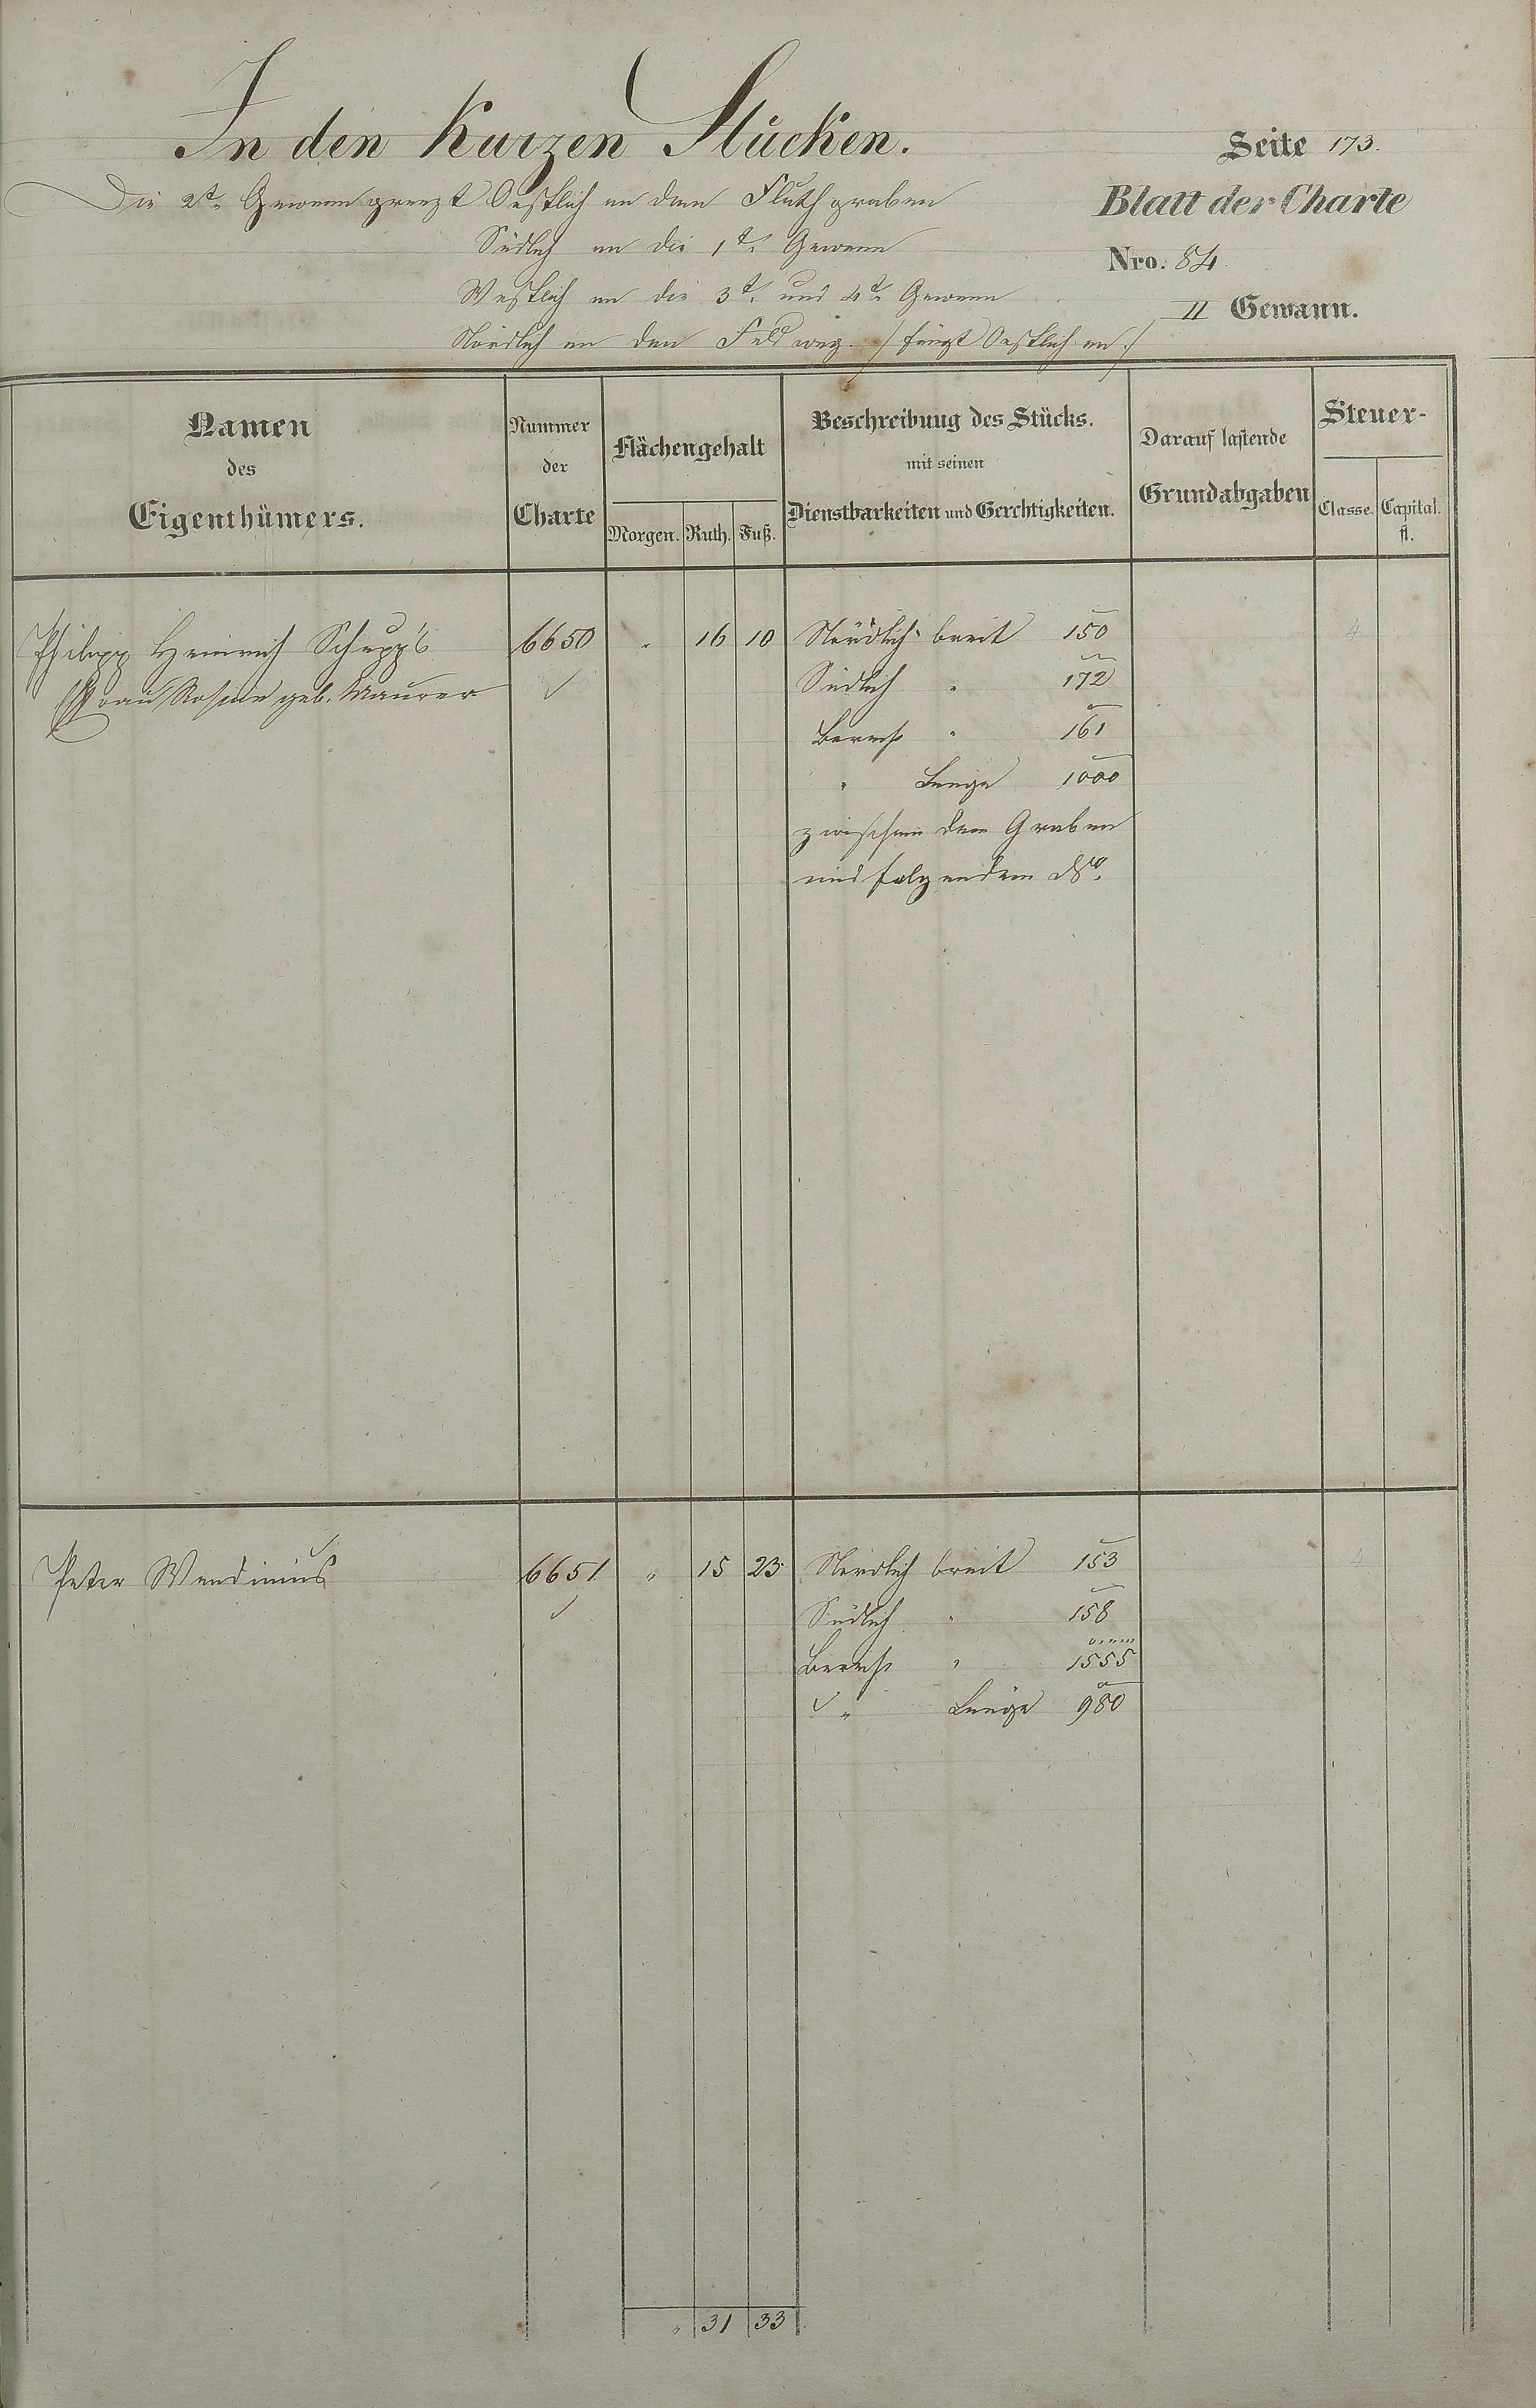 In den Kurzen Stücken.
Seite 173.
Die 2te Gewann grenzt Oestlich an den Fluthgraben
Blatt der Charte
Südlich an die 1te Gewann
Nro. 84
Westlich an die 3te und 4te Gewann
II Gewann.
Nördlich an den Feldweg. /: fängt Oestlich an :/
Namen
des
Eigenthümers.
Nummer
der
Charte
Flächengehalt
Morgen. Ruth. Fuß.
Beschreibung des Stücks.
mit seinen
Dienstbarkeiten und Gerechtigkeiten.
Darauf lastende
Grundabgaben
Steuer-
Classe. Capital.
fl.
Philipp Heinrich Schupp's 6650 " 16 10 Nördlich breit 150 4
Frau Rosine geb. Maurer Südlich " 172
" 161
" Länge 1000
zwischen dem Graben
und folgendem
Peter Wendimus 6651 " 15 23 Nördlich breit 153 4
Südlich " 158
" 1555
" Länge 980
" 31 33